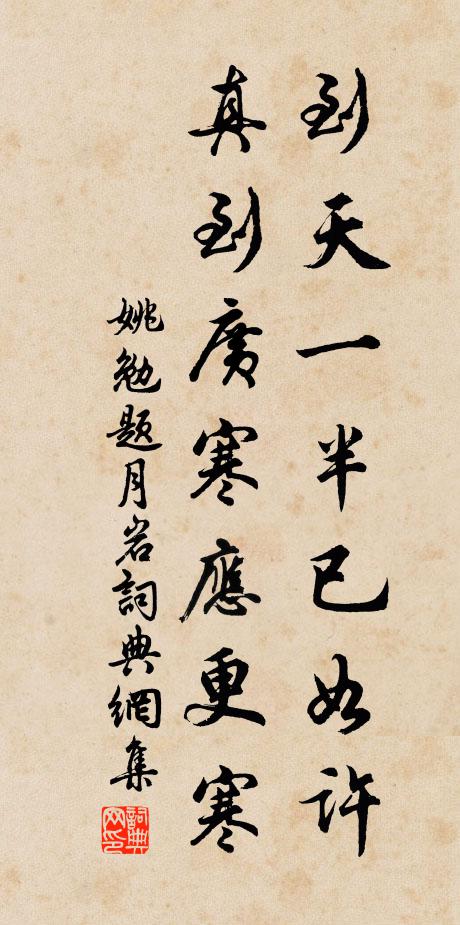 到天一半已如许
真到廣寒應更寒
姚勉题月岩詞典網集
詞典網印